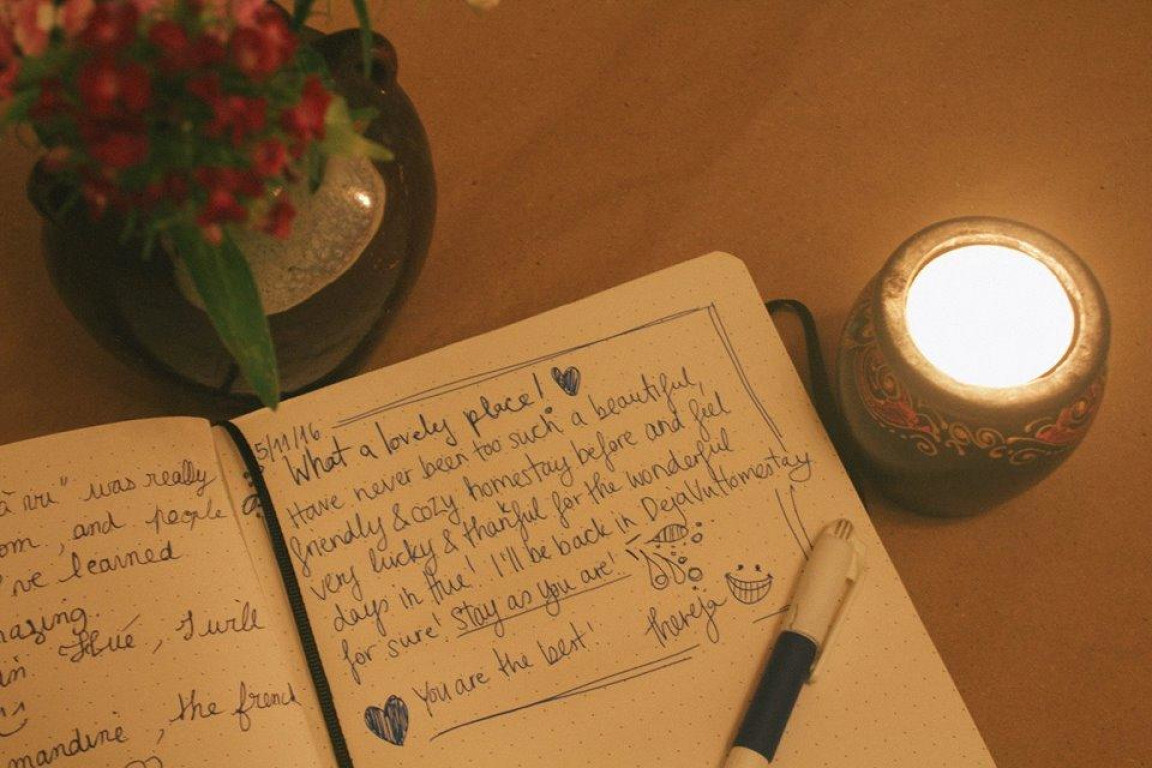 à vu" was really
om, and people
've learned
mazing.
in Hué, I will
mandine, the french
5/11/16
What a lovely place!
Have never been too such a beautiful,
friendly & cozy homestay before and feel
very lucky & thankful for the wonderful
days in Hue! I'll be back in DejaVuHomestay
for sure! Stay as you are!
You are the best!
Thereja